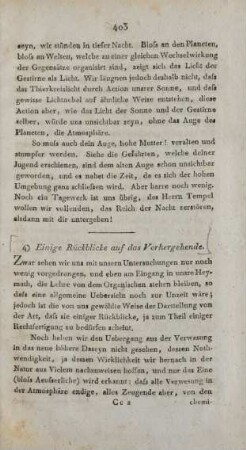 403
seyn, wir stünden in tiefer Nacht. Bloſs an den Planeten,
bloſs an Welten, welche zu einer gleichen Wechselwirkung
der Gegensätze organisirt sind, zeigt sich das Licht der
Gestirne als Licht. Wir läugnen jedoch deshalb nicht, daſs
das Thierkreislicht durch Action unsrer Sonne, und daſs
gewisse Lichtnebel auf ähnliche Weise entstehen, diese
Action aber, wie das Licht der Sonne und der Gestirne
selber, würde uns unsichtbar seyn, ohne das Auge des
Planeten, die Atmosphäre.
So muſs auch dein Auge, hohe Mutter! veralten und
stumpfer werden. Siehe die Gefährten, welche deiner
Jugend erschienen, sind dem alten Auge schon unsichtbar
geworden, und es nahet die Zeit, da es sich der hohen
Umgebung ganz schlieſsen wird. Aber harre noch wenig.
Noch ein Tagewerk ist uns übrig, das Herrn Tempel
wollen wir vollenden, das Reich der Nacht zerstören,
alsdann mit dir untergehen!
4) Einige Rückblicke auf das Vorhergehende.
Zwar sehen wir uns mit unsern Untersuchungen nur noch
wenig vorgedrungen, und eben am Eingang in unsre Hey-
math, die Lehre von dem Organischen stehen bleiben, so
daſs eine allgemeine Uebersicht noch zur Unzeit wäre;
jedoch ist die von uns gewählte Weise der Darstellung von
der Art, daſs sie einiger Rückblicke, ja zum Theil einiger
Rechtfertigung zu bedürfen scheint.
Noch haben wir den Uebergang aus der Verwesung
in das neue höhere Daseyn nicht gesehen, dessen Noth-
wendigkeit, ja dessen Wirklichkeit wir hernach in der
Natur aus Vielem nachzuweisen hoffen, und nur das Eine
(bloſs Aeuſserliche) wird erkannt: daſs alle Verwesung in
der Atmosphäre endige, alles Zeugende aber, von den
Cc 2 chemi-